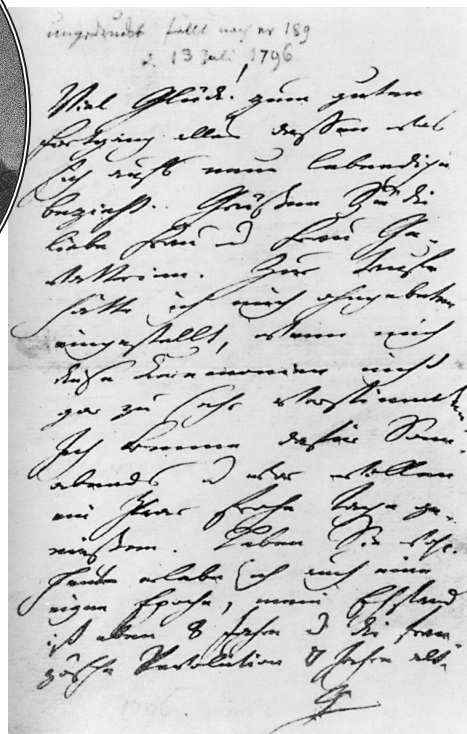 ungedruckt fällt nach nr 189
d. 13 Juli 1796
Viel Glück! zum guten
Fortgang alles dessen was
sich aufs neue lebendige
bezieht. Grüßen Sie die
liebe Frau u Frau Ge-
vatterinn. Zur Taufe
hätte ich mich ohngebeten
eingestellt, wenn mich
diese Ceremonien nicht
gar zu sehr verstimmten.
Ich komme dafür Sonn-
abends u wir wollen
ein Paar frohe Tage ge-
nießen. Leben Sie wohl.
Heute erlebe ich auch eine
eigne Epoche, mein Ehstand
ist eben 8 Jahre u die fran-
zösche Revolution 7 Jahre alt.
G